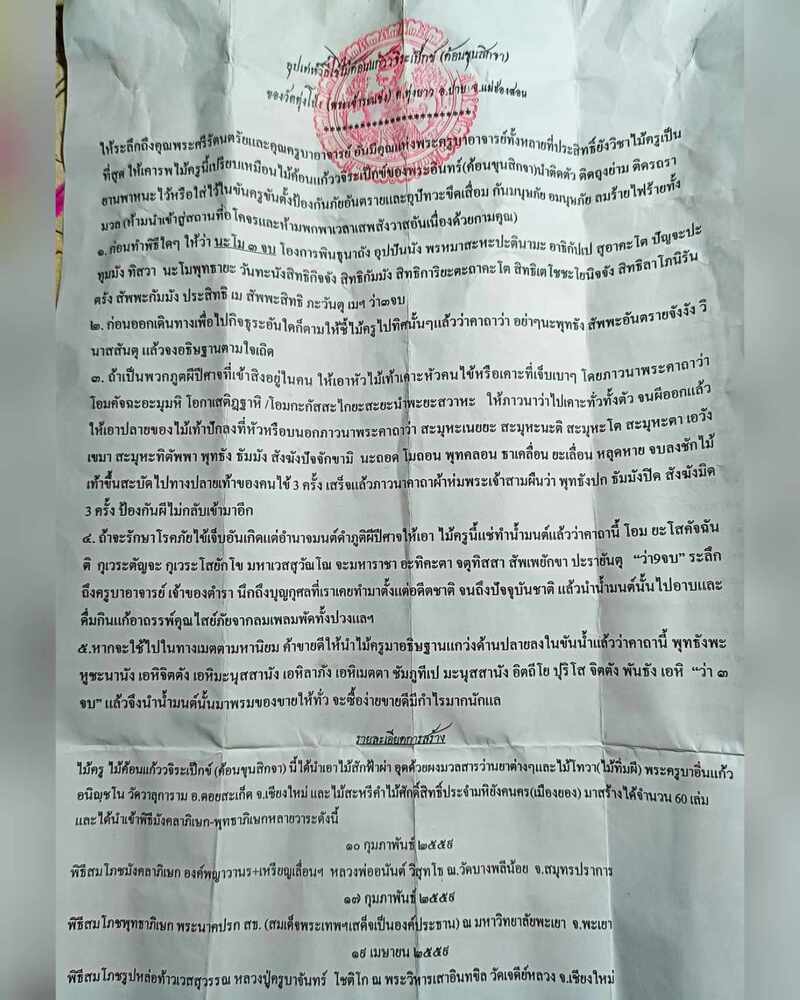 อุปเท่ห์วิธีใช้ไม้ค้อนแก้ววชิระเป๊กข์ (ค้อนขุนสิกจา)
ของวัดทุ่งโป่ง (พระเจ้าระแข่ง) ต.ทุ่งยาว อ.ปาย จ.แม่ฮ่องสอน
ให้ระลึกถึงคุณพระศรีรัตนตรัยและคุณครูบาอาจารย์ อันมีคุณแห่งพระครูบาอาจารย์ทั้งหลายที่ประสิทธิ์ยังวิชาไม้ครูเป็น
ที่สุด ให้เคารพไม้ครูนี้เปรียบเหมือนไม้ค้อนแก้ววจิระเป๊กข์ของพระอินทร์(ค้อนขุนสิกจา)นำติดตัว ติดถุงย่าม ติดรถรา
ยานพาหนะไว้หรือใส่ไว้ในขันครูขันตั้งป้องกันภัยอันตรายและอุปัทวะขึดเสื่อม กันมนุษภัย อมนุษภัย ลมร้ายไฟร้ายทั้ง
มวล (ห้ามนำเข้าสู่สถานที่อโคจรและห้ามพกพาเวลาเสพสังวาสอันเนื่องด้วยกามคุณ)
๑. ก่อนทำพิธีใดๆ ให้ว่า นะโม ๓ จบ โองการพินธุนาถัง อุปปันนัง พรหมาสะหะปะตินามะ อาธิกัปเป สุอาคะโต ปัญจะปะ
ทุมมัง ทิสวา นะโมพุทธายะ วันทะนังสิทธิกิจจัง สิทธิกัมมัง สิทธิการิยะตะถาคะโต สิทธิเตโชชะโยนิจจัง สิทธิลาโภนิรัน
ตรัง สัพพะกัมมัง ประสิทธิ เม สัพพะสิทธิ ภะวันตุ เมฯ ว่า๓จบ
๒. ก่อนออกเดินทางเพื่อไปกิจธุระอันใดก็ตามให้ชี้ไม้ครูไปทิศนั้นๆแล้วว่าคาถาว่า อย่าๆนะพุทธัง สัพพะอันตรายจังงัง วิ
นาสสันตุ แล้วจงอธิษฐานตามใจเถิด
๓. ถ้าเป็นพวกภูตผีปีศาจที่เข้าสิงอยู่ในคน ให้เอาหัวไม้เท้าเคาะหัวคนไข้หรือเคาะที่เจ็บเบาๆ โดยภาวนาพระคาถาว่า
โอมคัจฉะอะมุมหิ โอกาเสติฏฐาหิ /โอมกะกัสสะไกยะสะยะนำพะยะสวาหะ ให้ภาวนาว่าไปเคาะทั่วทั้งตัว จนผีออกแล้ว
ให้เอาปลายของไม้เท้าปักลงที่หัวหรือบนอกภาวนาพระคาถาว่า สะมุหะเนยยะ สะมุหะนะติ สะมุหะโต สะมุหะตา เอวัง
เขมา สะมุหะทิตัพพา พุทธัง ธัมมัง สังฆังปัจจักขามิ นะถอด โมถอน พุทคลอน ธาเคลื่อน ยะเลื่อน หลุดหาย จบลงชักไม้
เท้าขึ้นสะบัดไปทางปลายเท้าของคนไข้ 3 ครั้ง เสร็จแล้วภาวนาคาถาผ้าห่มพระเจ้าสามผืนว่า พุทธังปก ธัมมังปิด สังฆังมิด
3 ครั้ง ป้องกันผีไม่กลับเข้ามาอีก
๔. ถ้าจะรักษาโรคภัยไข้เจ็บอันเกิดแต่อำนาจมนต์ดำภูติผีปีศาจให้เอา ไม้ครูนี้แช่ทำน้ำมนต์แล้วว่าคาถานี้ โอม ยะโสคัจฉัน
ติ กุเวระตัญจะ กุเวระโสยักโข มหาเวสสุวัณโณ จะมหาราชา อะทิคะตา จตุทิสสา สัพเพยักขา ปะรายันตุ "ว่า9จบ" ระลึก
ถึงครูบาอาจารย์ เจ้าของตำรา นึกถึงบุญกุศลที่เราเคยทำมาตั้งแต่อดีตชาติ จนถึงปัจจุบันชาติ แล้วนำน้ำมนต์นั้นไปอาบและ
ดื่มกินแก้อาถรรพ์คุณไสย์ภัยจากลมเพลมพัดทั้งปวงแลฯ
๕.หากจะใช้ไปในทางเมตตามหานิยม ค้าขายดีให้นำไม้ครูมาอธิษฐานแกว่งด้านปลายลงในขันน้ำแล้วว่าคาถานี้ พุทธังพะ
หูชะนานัง เอหิจิตตัง เอหิมะนุสสานัง เอหิลาภัง เอหิเมตตา ชัมภูทีเป มะนุสสานัง อิตถีโย ปุริโส จิตตัง พันธัง เอหิ "ว่า ๓
จบ" แล้วจึงนำน้ำมนต์นั้นมาพรมของขายให้ทั่ว จะซื้อง่ายขายดีมีกำไรมากนักแล
รายละเอียดการสร้าง
ไม้ครู ไม้ค้อนแก้ววจิระเป๊กข์ (ค้อนขุนสิกจา) นี้ได้นำเอาไม้สักฟ้าผ่า อุดด้วยผงมวลสารว่านยาต่างๆและไม้โทวา(ไม้ทิ่มผี) พระครูบาอิ่นแก้ว
อนิญชโน วัดวาลุการาม อ.ดอยสะเก็ด จ.เชียงใหม่ และไม้สะหรีค้ำไม้ศักดิ์สิทธิ์ประจำมหิยังคนคร(เมืองยอง) มาสร้างได้จำนวน 60 เล่ม
และได้นำเข้าพิธีมังคลาภิเษก-พุทธาภิเษกหลายวาระดังนี้
๑๐ กุมภาพันธ์ ๒๕๕๙
พิธีสมโภชมังคลาภิเษก องค์พญาวานร+เหรียญเลื่อนฯ หลวงพ่ออนันต์ วิสุทโธ ณ.วัดบางพลีน้อย จ.สมุทรปราการ
๑๗ กุมภาพันธ์ ๒๕๕๙
พิธีสมโภชพุทธาภิเษก พระนาคปรก สช. (สมเด็จพระเทพฯเสด็จเป็นองค์ประธาน) ณ มหาวิทยาลัยพะเยา จ.พะเยา
๑๙ เมษายน ๒๕๕๙
พิธีสมโภชรูปหล่อท้าวเวสสุวรรณ หลวงปู่ครูบาจันทร์ โชติโก ณ พระวิหารเสาอินทขิล วัดเจดีย์หลวง จ.เชียงใหม่